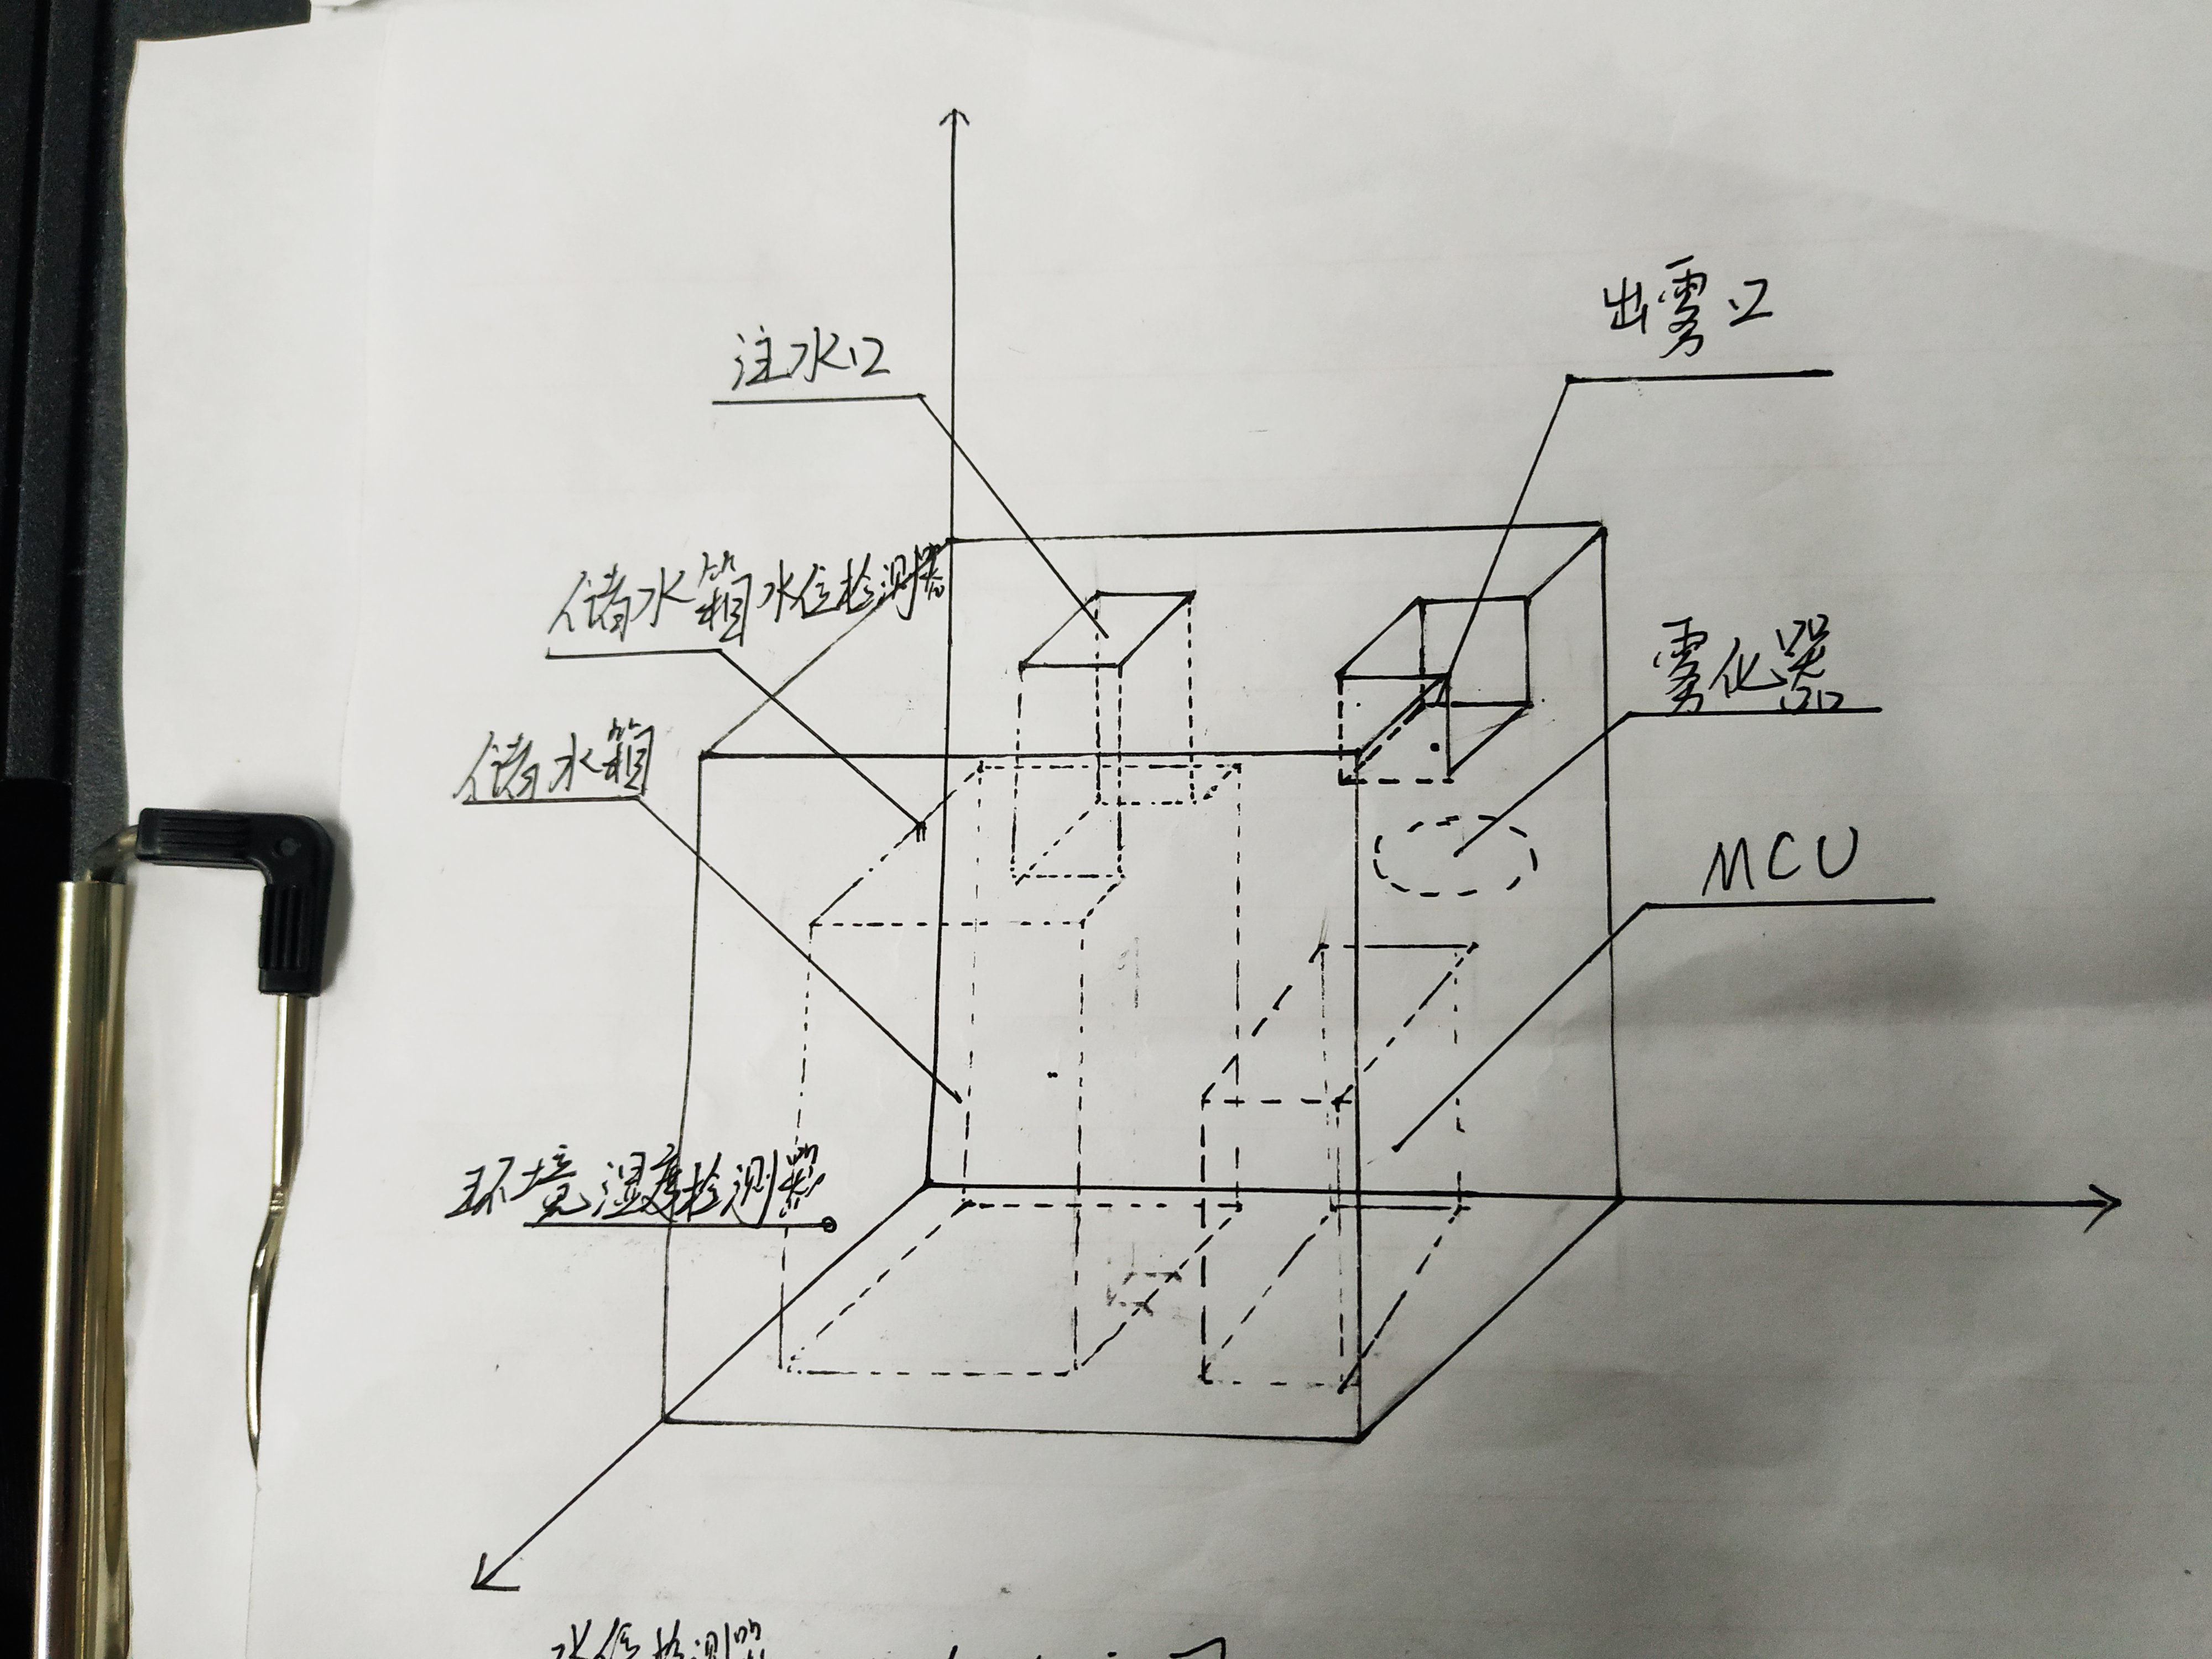 出雾口
注水口
储水箱水位检测器
雾化器
储水箱
MCU
环境湿度检测器
水位检测器